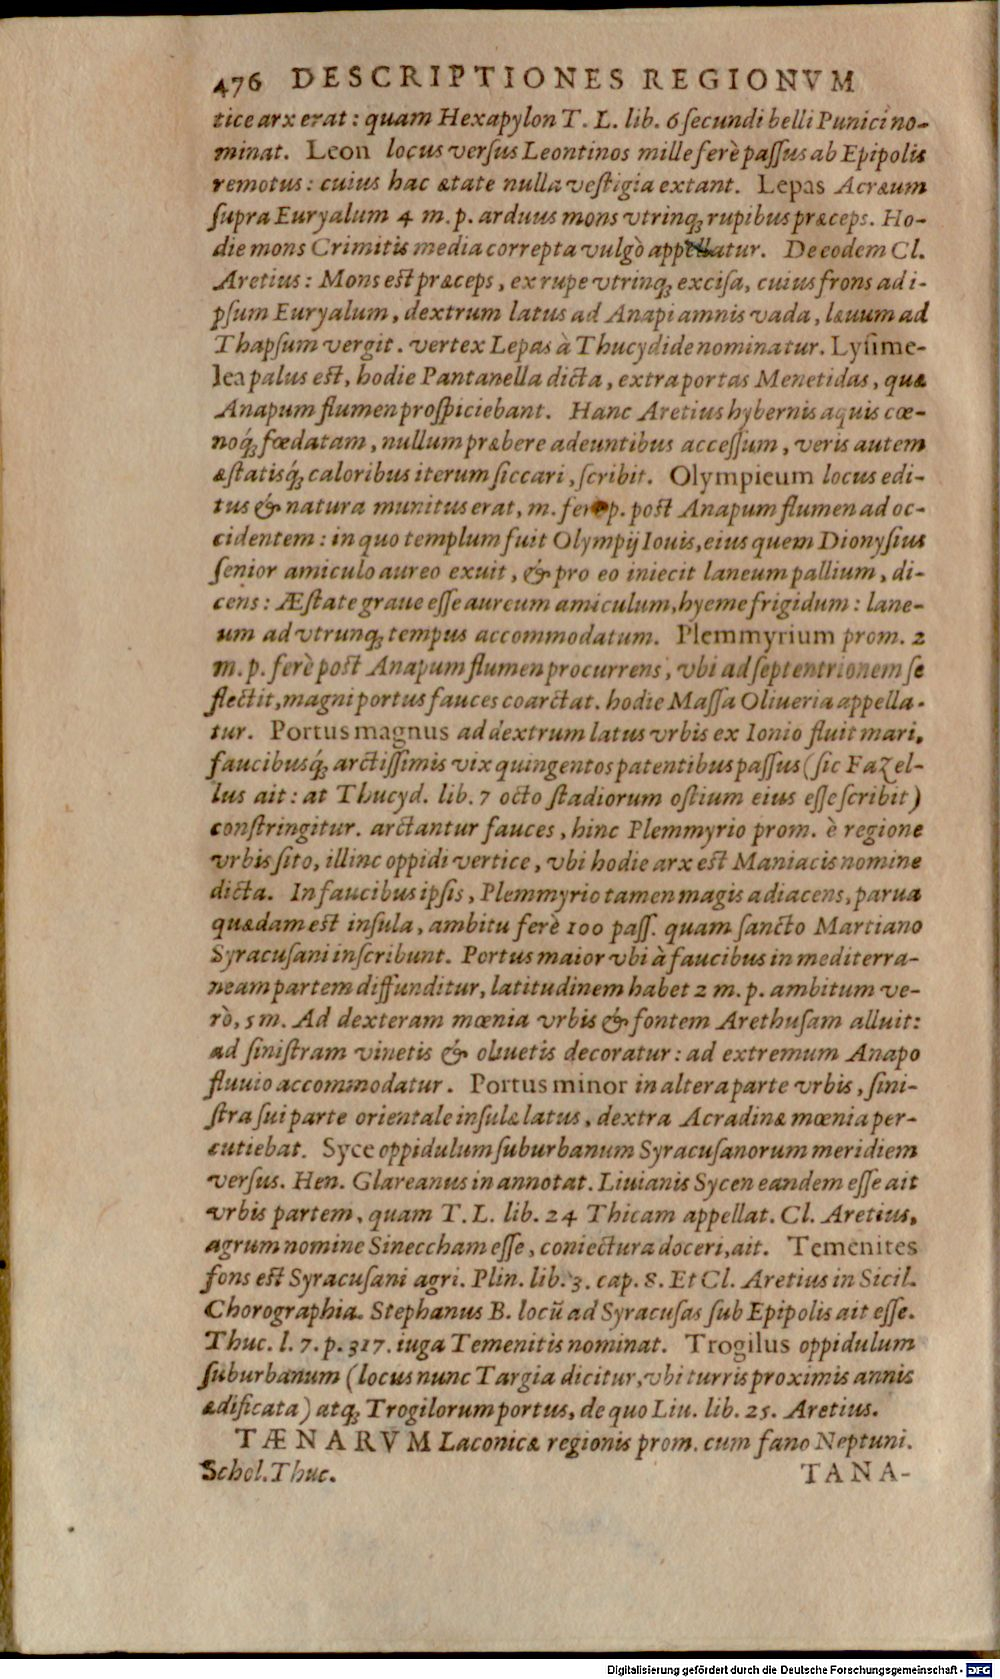 476 DESCRIPTIONES REGIONVM
tice arx erat: quam Hexapylon T. L. lib. 6 secundi belli Punici no-
minat. Leon locus versus Leontinos mille ferè passus ab Epipolis
remotus: cuius hac ætate nulla vestigia extant. Lepas Acræum
supra Euryalum 4 m. p. arduus mons vtrinq; rupibus præceps. Ho-
die mons Crimitis media correpta vulgò appellatur. De eodem Cl.
Aretius: Mons est præceps, ex rupe vtrinq; excisa, cuius frons ad i-
psum Euryalum, dextrum latus ad Anapi amnis vada, læuum ad
Thapsum vergit. vertex Lepas à Thucydide nominatur. Lysime-
lea palus est, hodie Pantanella dicta, extra portas Menetidas, quæ
Anapum flumen prospiciebant. Hanc Aretius hybernis aquis cœ-
noq́; fœdatam, nullum præbere adeuntibus accessum, veris autem
æstatisq́; caloribus iterum siccari, scribit. Olympieum locus edi-
tus & natura munitus erat, m. fer p. post Anapum flumen ad oc-
cidentem: in quo templum fuit Olympij Iouis, eius quem Dionysius
senior amiculo aureo exuit, & pro eo iniecit laneum pallium, di-
cens: Æstate graue esse aureum amiculum, hyeme frigidum: lane-
um ad vtrunq; tempus accommodatum. Plemmyrium prom. 2
m. p. ferè post Anapum flumen procurrens, vbi ad septentrionem se
flectit, magni portus fauces coarctat. hodie Massa Oliueria appella-
tur. Portus magnus ad dextrum latus vrbis ex Ionio fluit mari,
faucibusq́; arctissimis vix quingentos patentibus passus (sic Fazel-
lus ait: at Thucyd. lib. 7 octo stadiorum ostium eius esse scribit)
constringitur. arctantur fauces, hinc Plemmyrio prom. è regione
vrbis sito, illinc oppidi vertice, vbi hodie arx est Maniacis nomine
dicta. In faucibus ipsis, Plemmyrio tamen magis adiacens, parua
quædam est insula, ambitu ferè 100 pass. quam sancto Martiano
Syracusani inscribunt. Portus maior vbi à faucibus in mediterra-
neam partem diffunditur, latitudinem habet 2 m. p. ambitum ve-
rò, 5 m. Ad dexteram mœnia vrbis & fontem Arethusam alluit:
ad sinistram vinetis & oliuetis decoratur: ad extremum Anapo
fluuio accommodatur. Portus minor in altera parte vrbis, sini-
stra sui parte orientale insulæ latus, dextra Acradinæ mœnia per-
cutiebat. Syce oppidulum suburbanum Syracusanorum meridiem
versus. Hen. Glareanus in annotat. Liuianis Sycen eandem esse ait
vrbis partem, quam T. L. lib. 24 Thicam appellat. Cl. Aretius,
agrum nomine Sineccham esse, coniectura doceri, ait. Temenites
fons est Syracusani agri. Plin. lib. 3. cap. 8. Et Cl. Aretius in Sicil.
Chorographia. Stephanus B. locũ ad Syracusas sub Epipolis ait esse.
Thuc. l. 7. p. 317. iuga Temenitis nominat. Trogilus oppidulum
suburbanum (locus nunc Targia dicitur, vbi turris proximis annis
ædificata) atq; Trogilorum portus, de quo Liu. lib. 25. Aretius.
TÆNARVM Laconicæ regionis prom. cum fano Neptuni.
Schol. Thuc.
TANA-
Digitalisierung gefördert durch die Deutsche Forschungsgemeinschaft - DFG